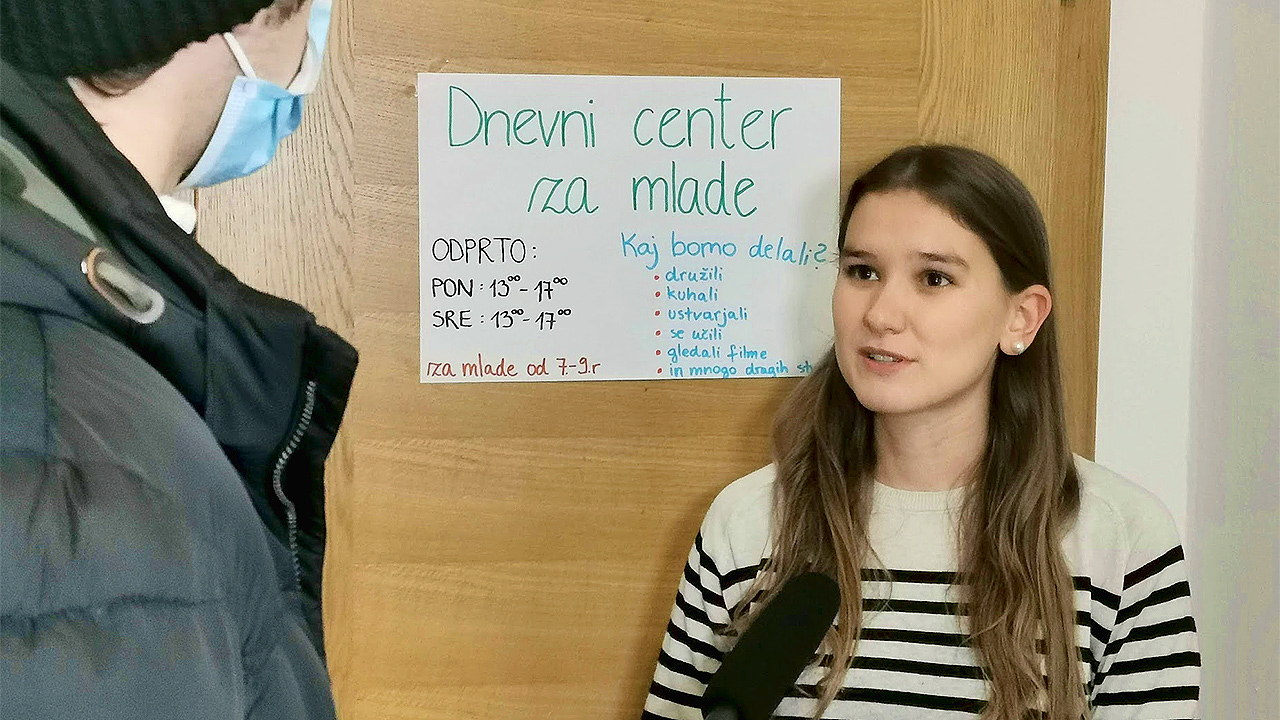 Dnevni center
za mlade
ODPRTO:
PON: 13⁰⁰-17⁰⁰
SRE: 13⁰⁰-17⁰⁰
za mlade od 7-9.r
Kaj bomo delali?
• družili
• kuhali
• ustvarjali
• se učili
• gledali filme
• in mnogo dragih